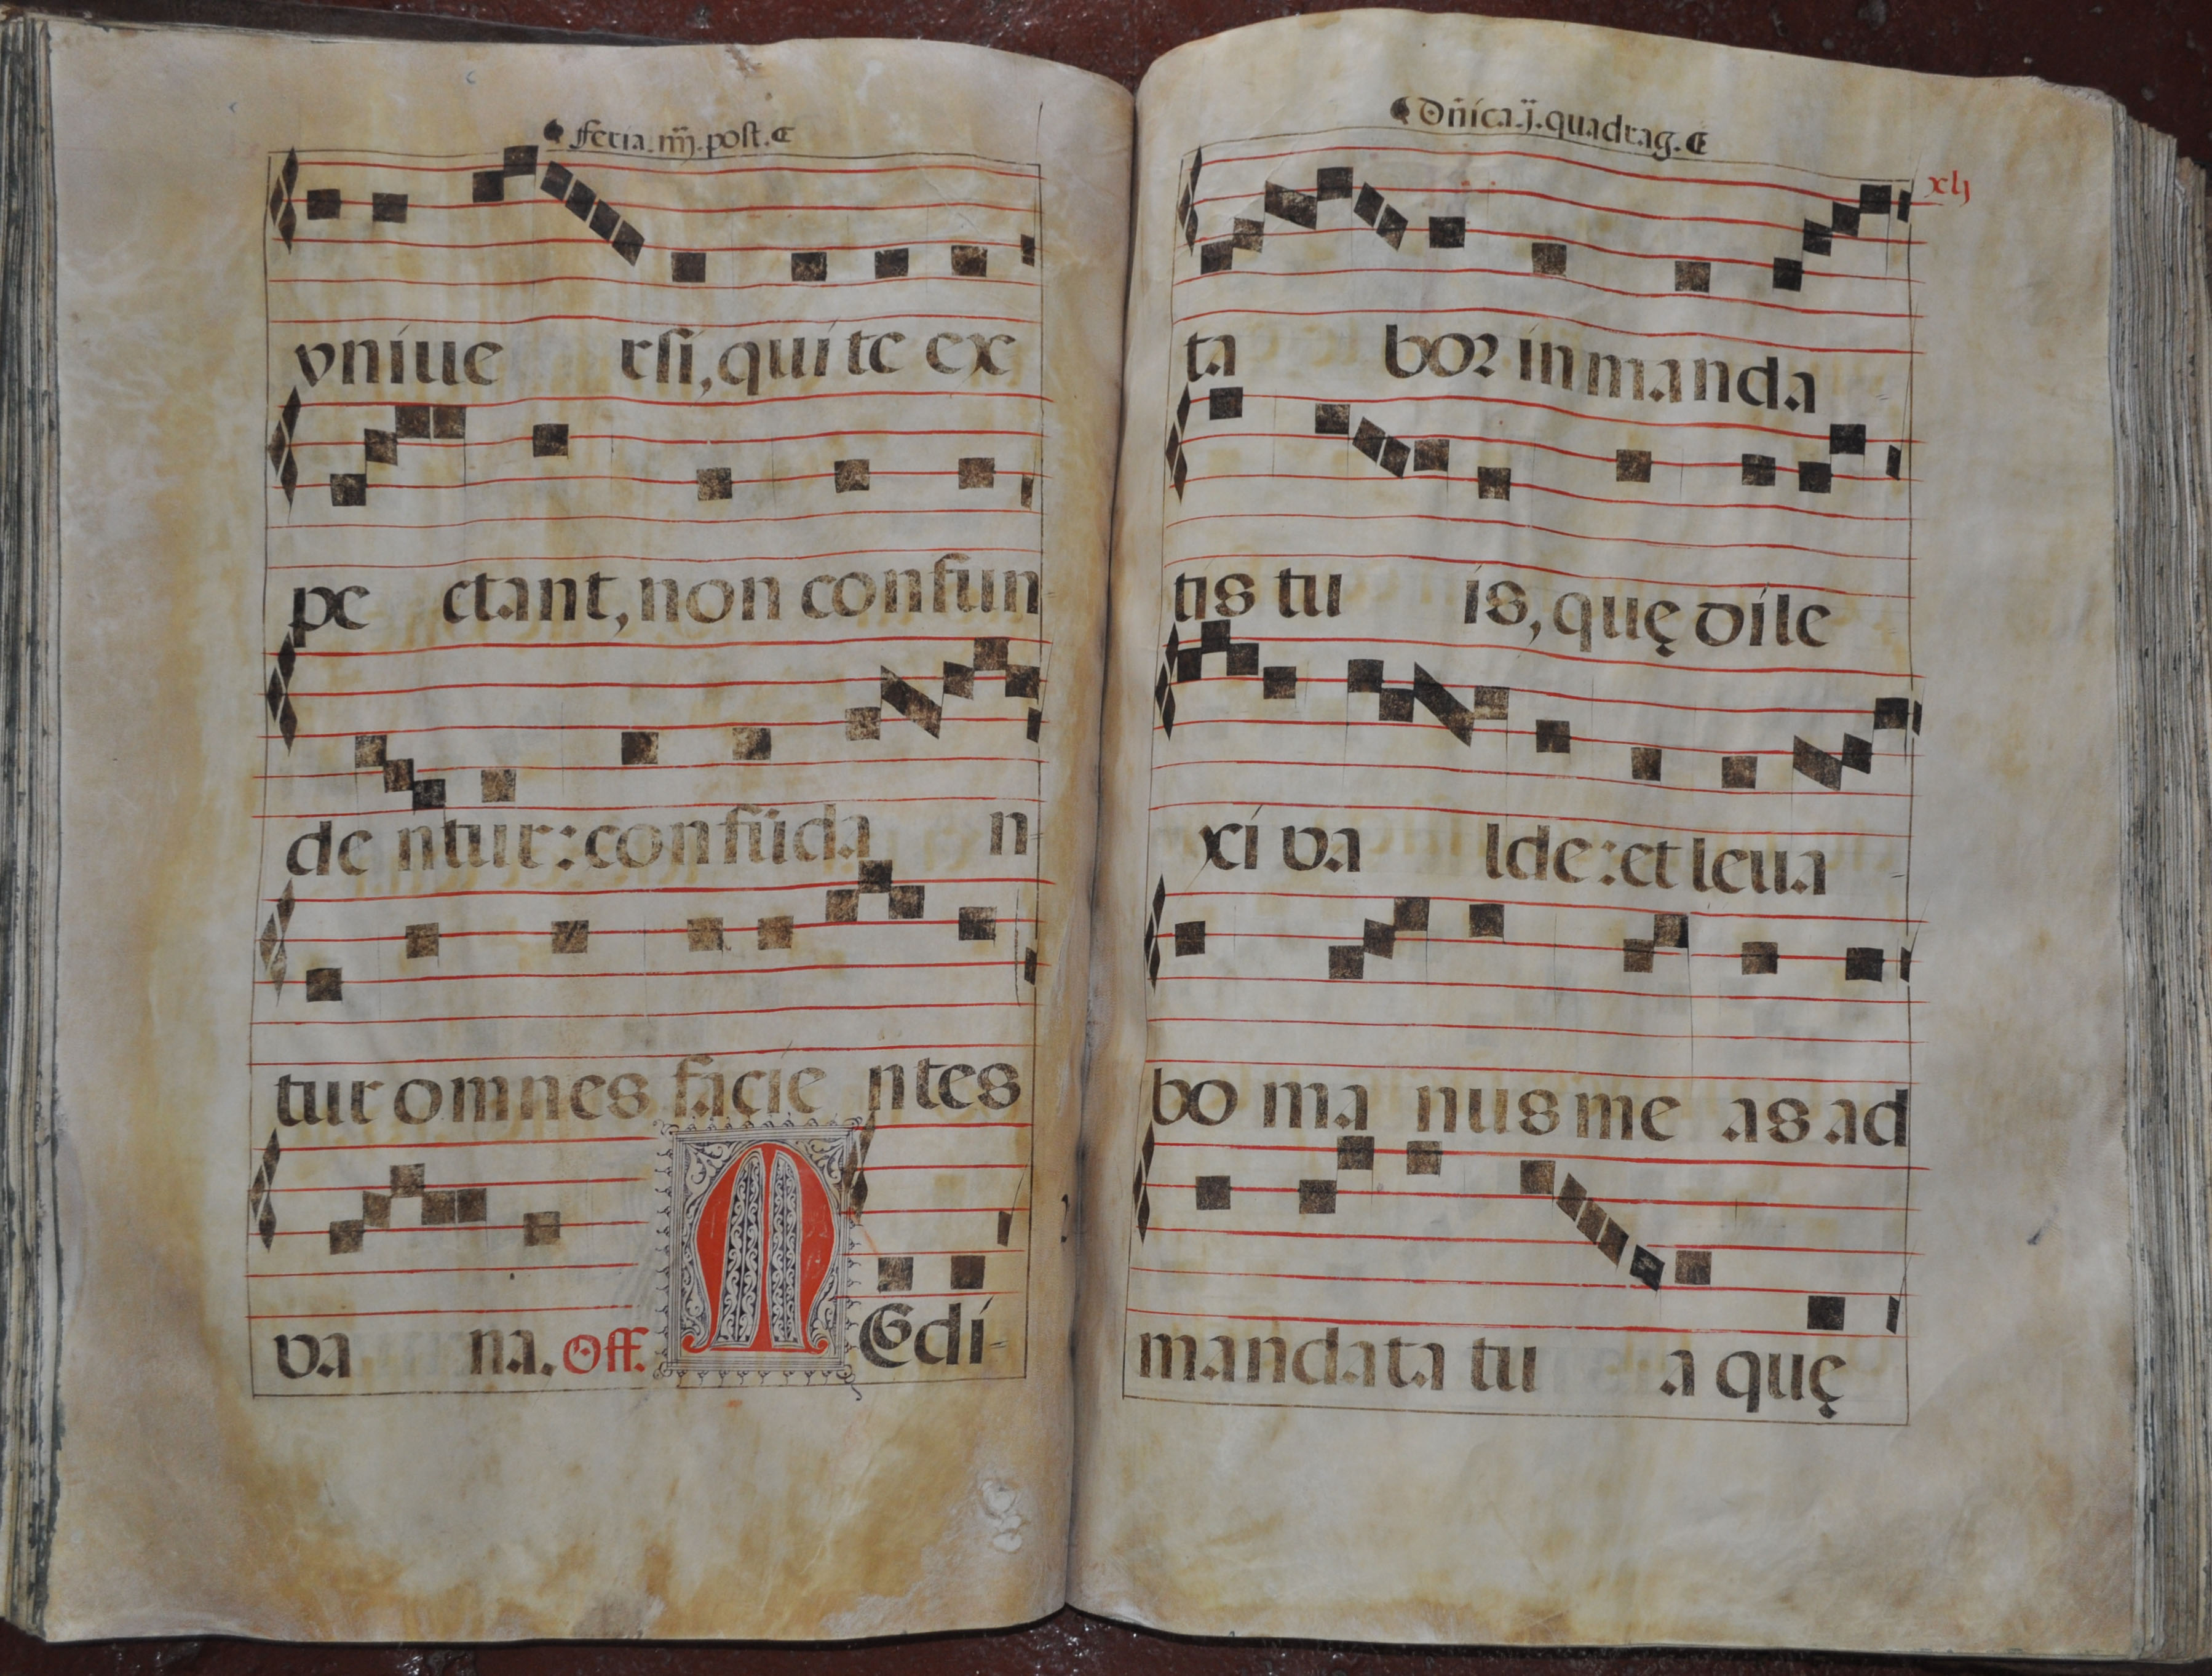 feria.iiij.post.
vniue rsi, qui te ex
pe ctant, non confun
de ntur: confūda n
tur omnes facie ntes
va na. Off. MEdi-
Dñica.j.quadrag.
xlj
ta bor in manda
tis tu is, quę dile
xi va lde: et leua
bo ma nus me as ad
mandata tu a quę